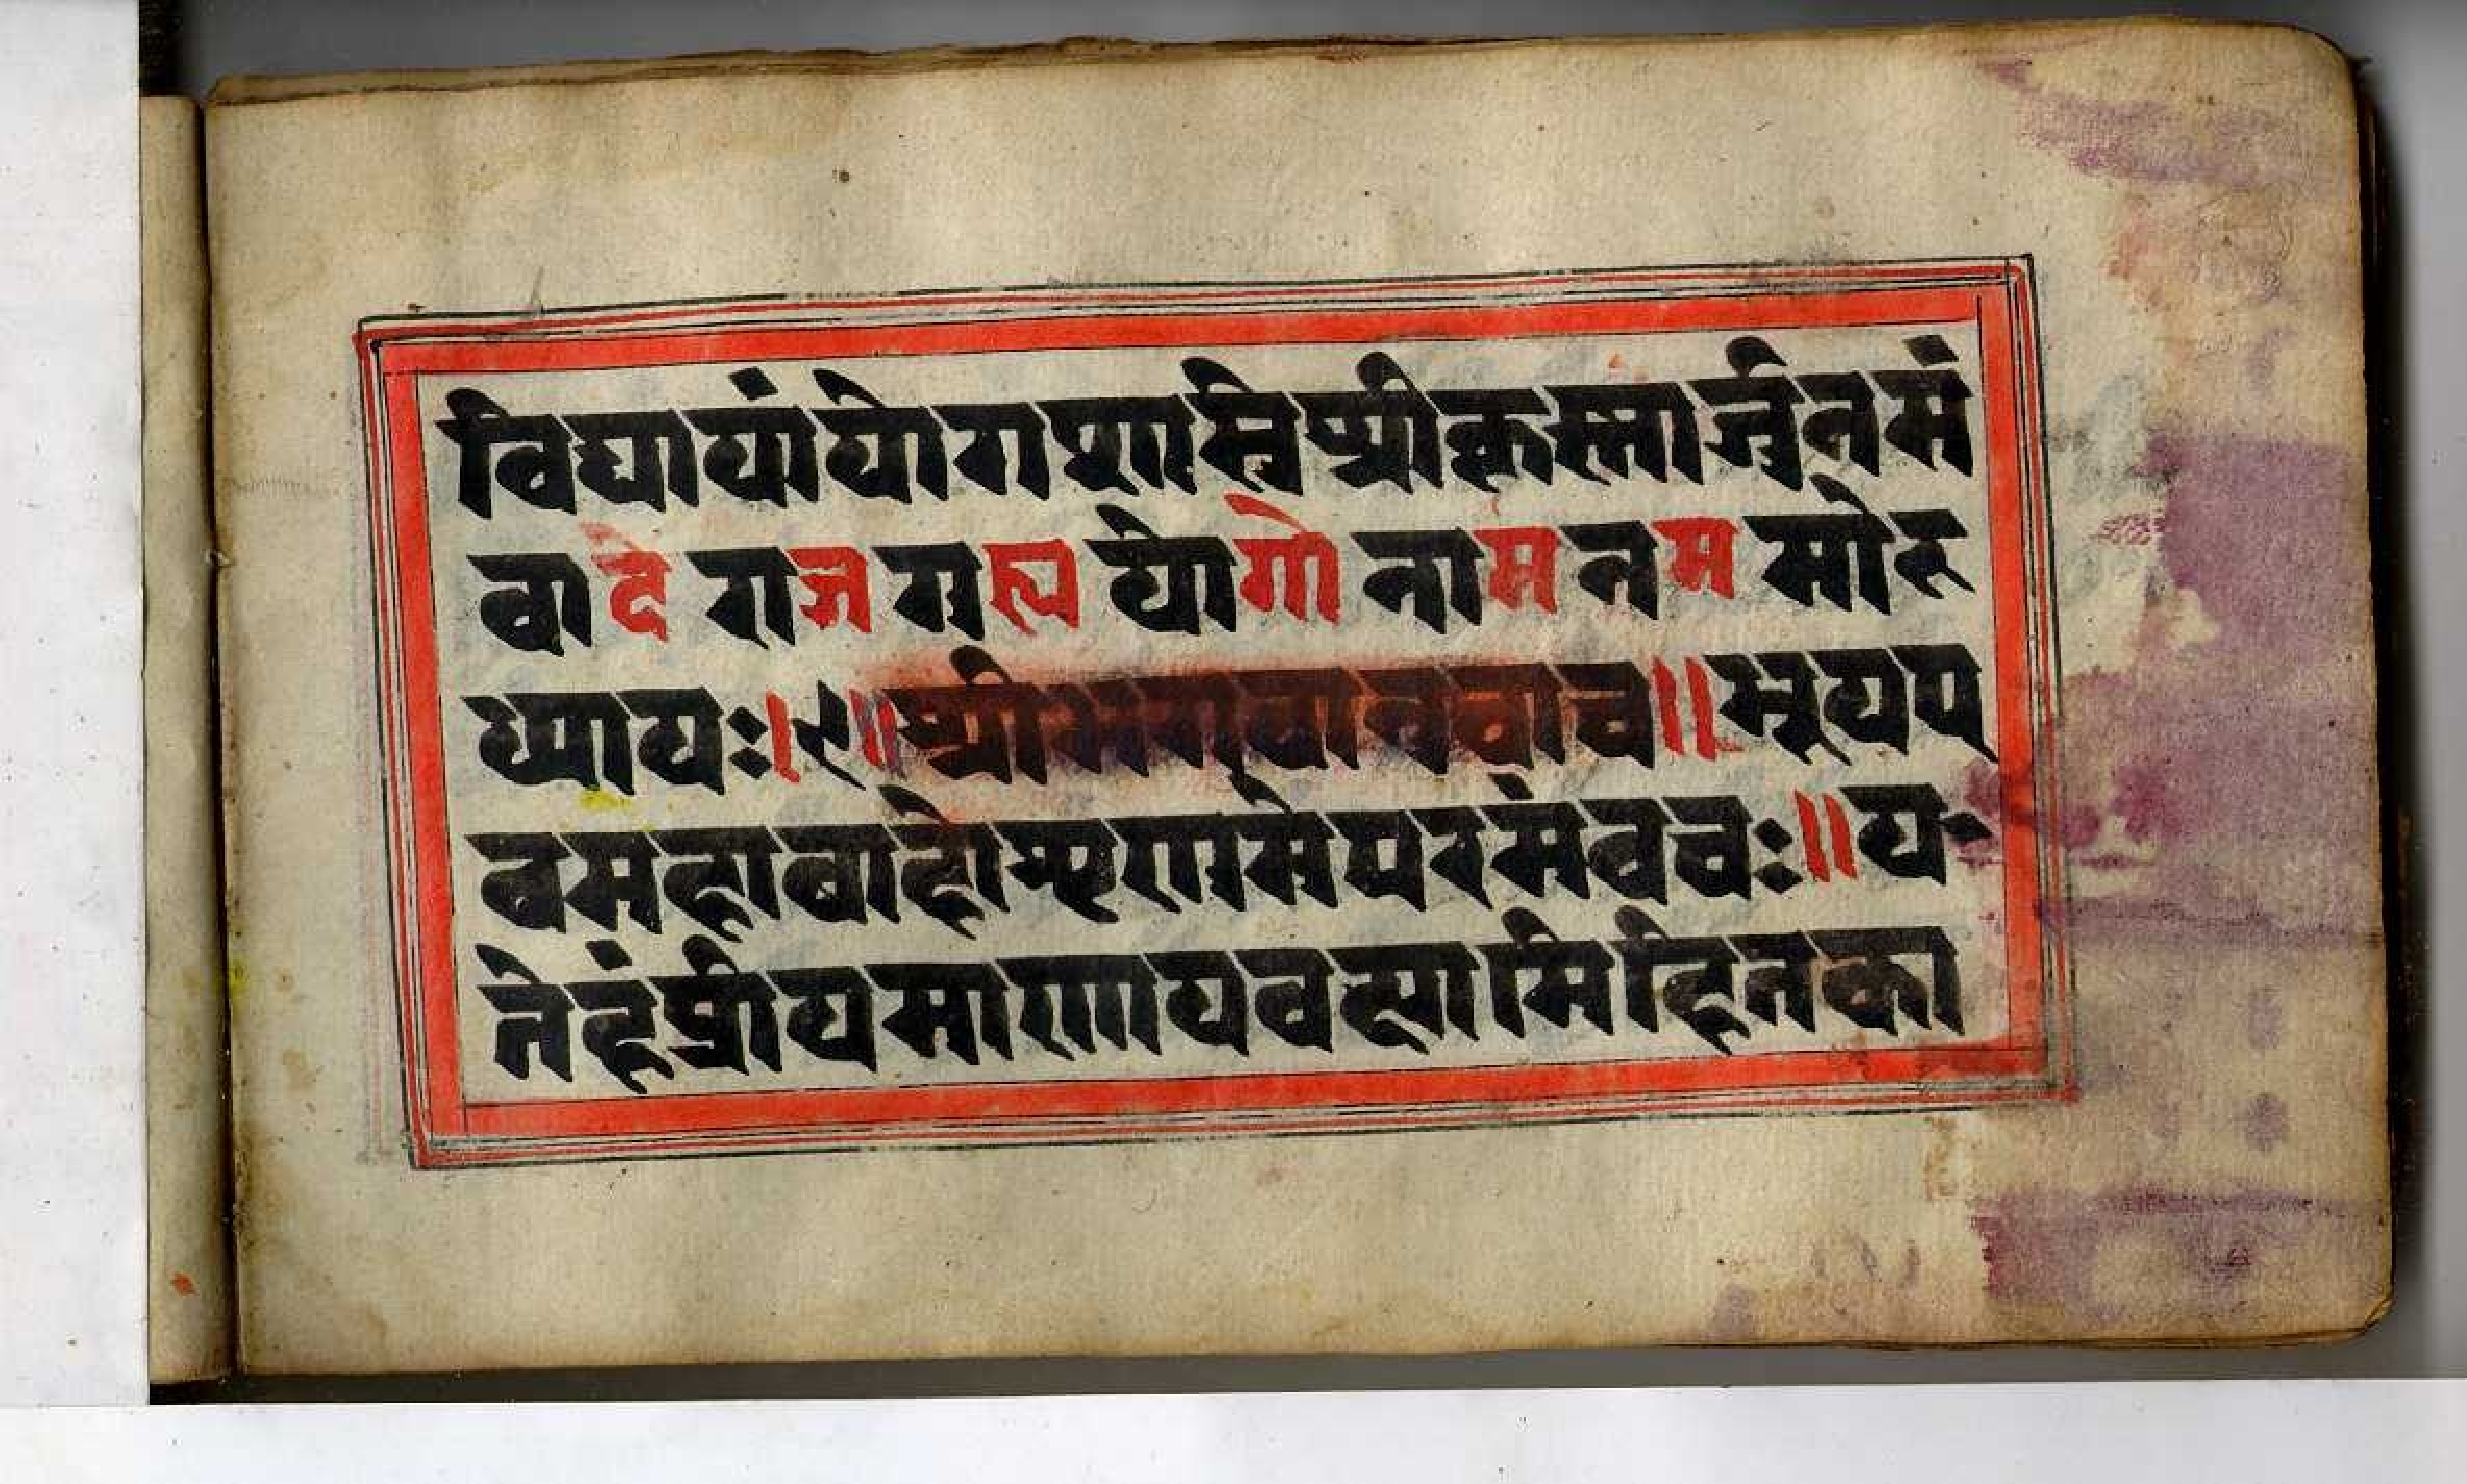 विद्यायांयोगशास्त्रेश्रीकृस्नार्जुनसं
वादे राजगुह्ययोगो नाम नममोऽ
ध्यायः।९॥श्रीभगवानवाच॥भूयए
वमहाबाहोशृणुमेपरमंवचः॥य-
तेहंप्रीयमाणायवक्ष्यामिहितका